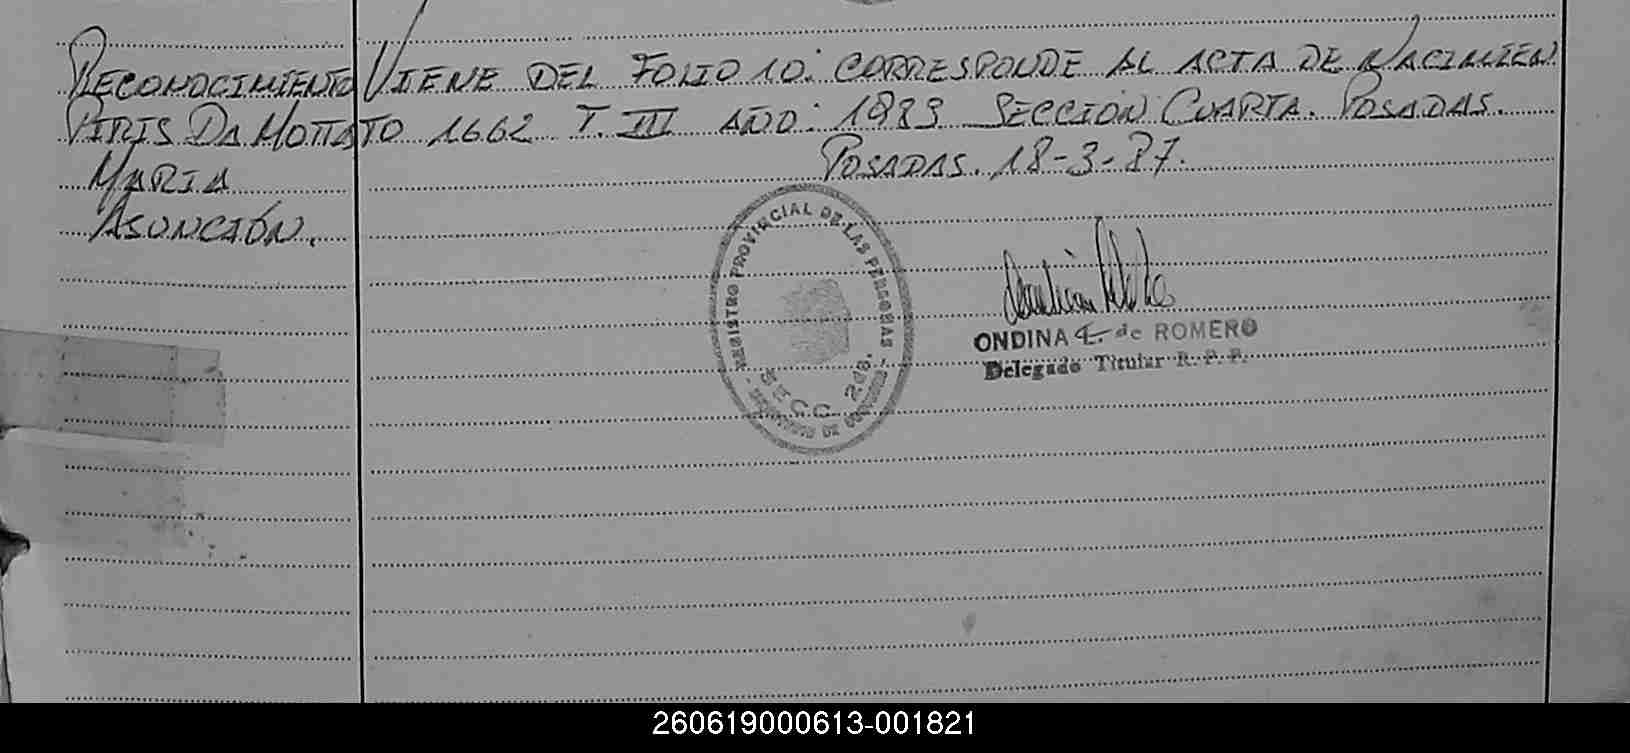 RECONOCIMIENTO
PIRIS DA MOTTA
MARIA
ASUNCIÓN.
VIENE DEL FOLIO 10. CORRESPONDE AL ACTA DE NACIMIEN
TO 1662 T. III AÑO: 1983 SECCIÓN CUARTA. POSADAS.
POSADAS. 18-3-87.
REGISTRO PROVINCIAL DE LAS PERSONAS
SECC. 2da.
ONDINA de ROMERO
Delegado Titular R. P. P.
260619000613-001821